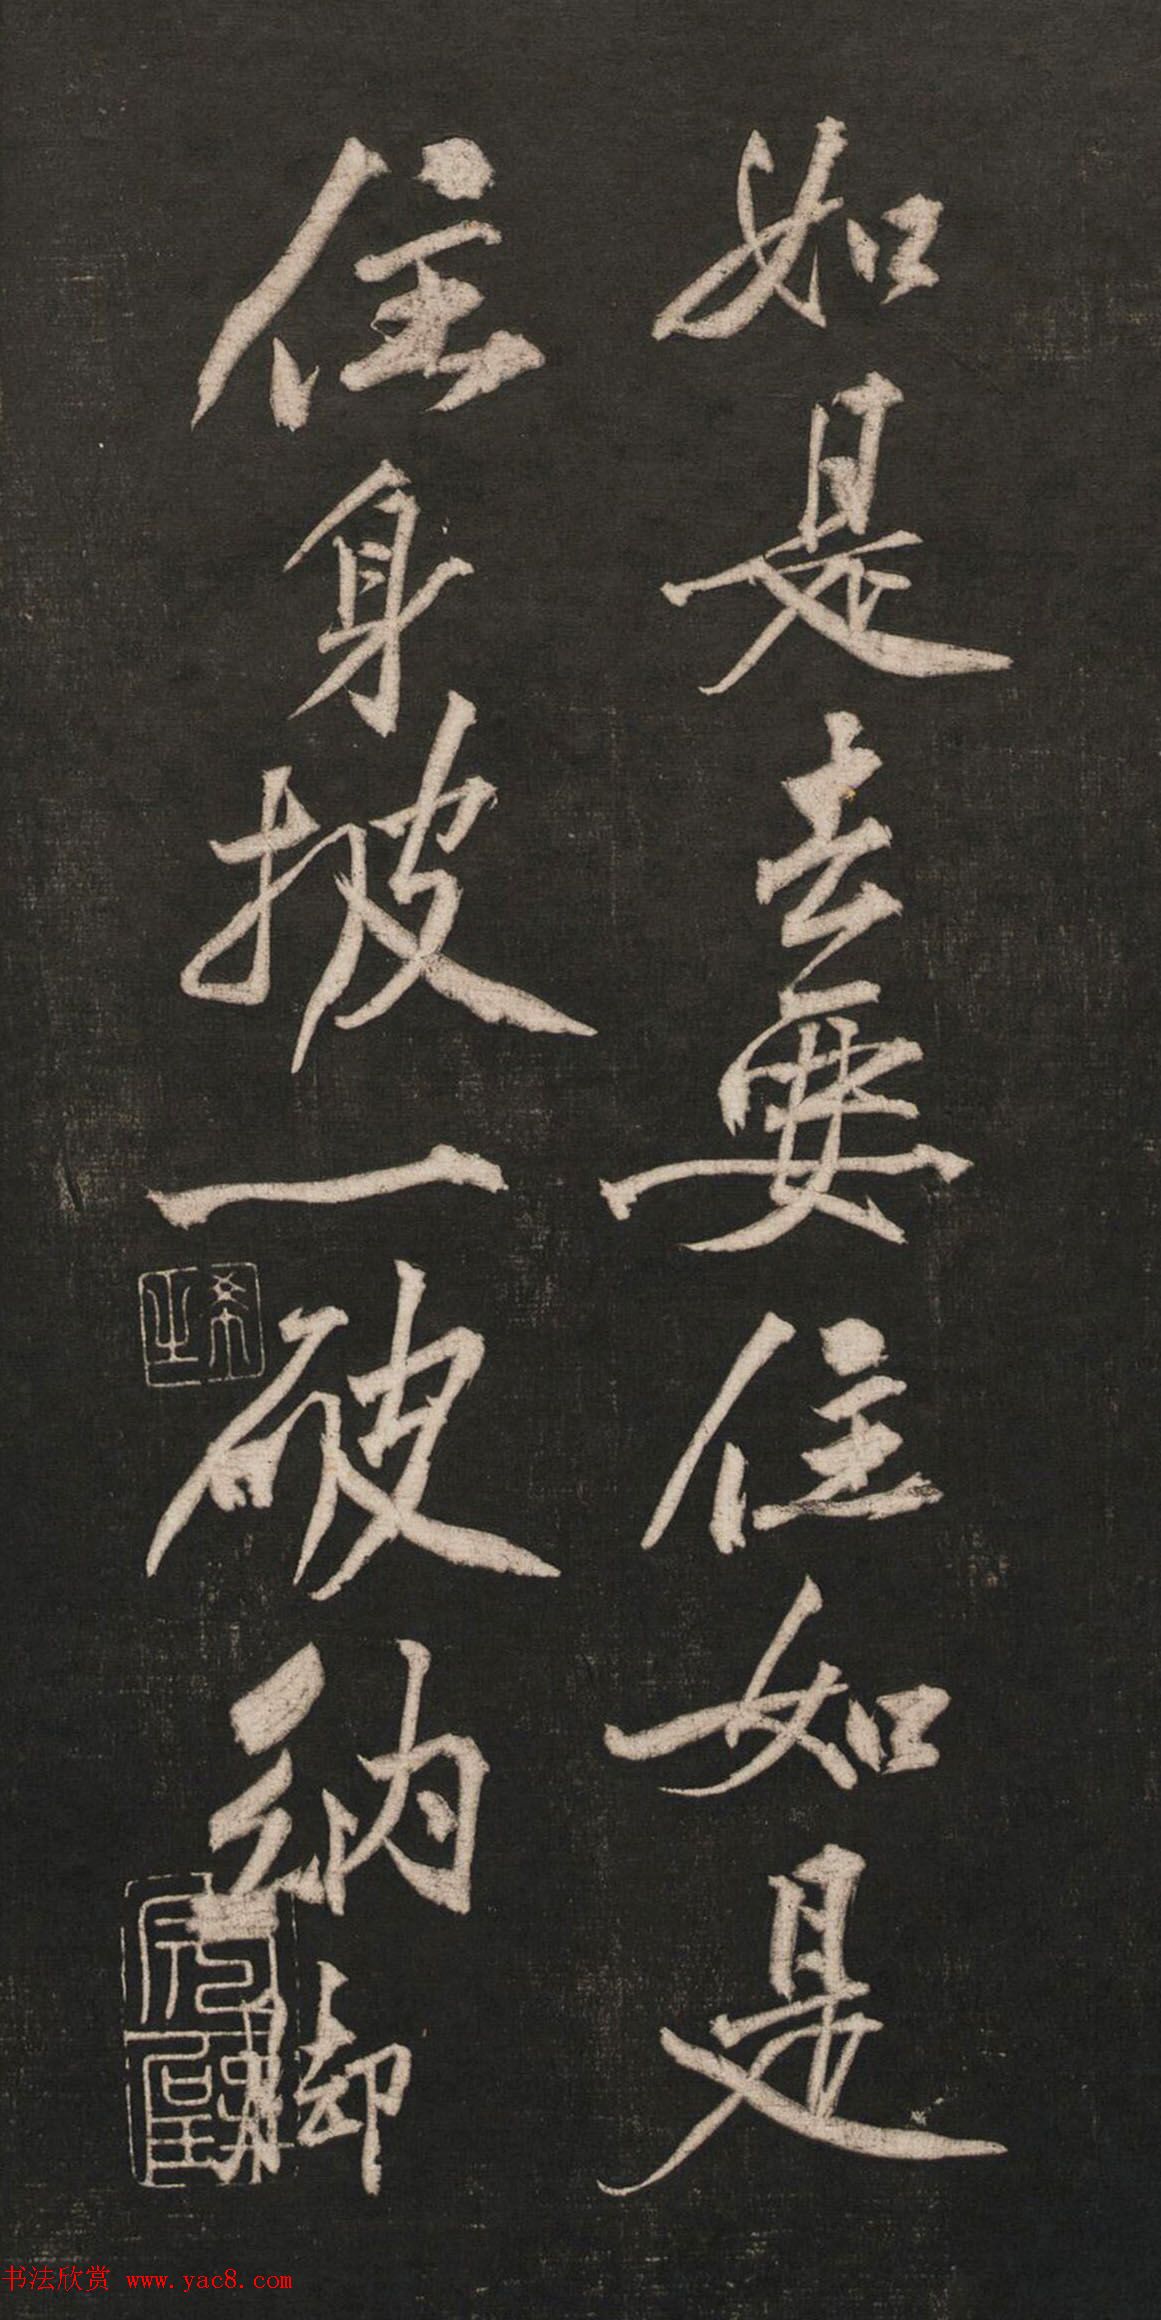 如是去要住如是
住身披一破衲脚
希之
书法欣赏 www.yac8.com